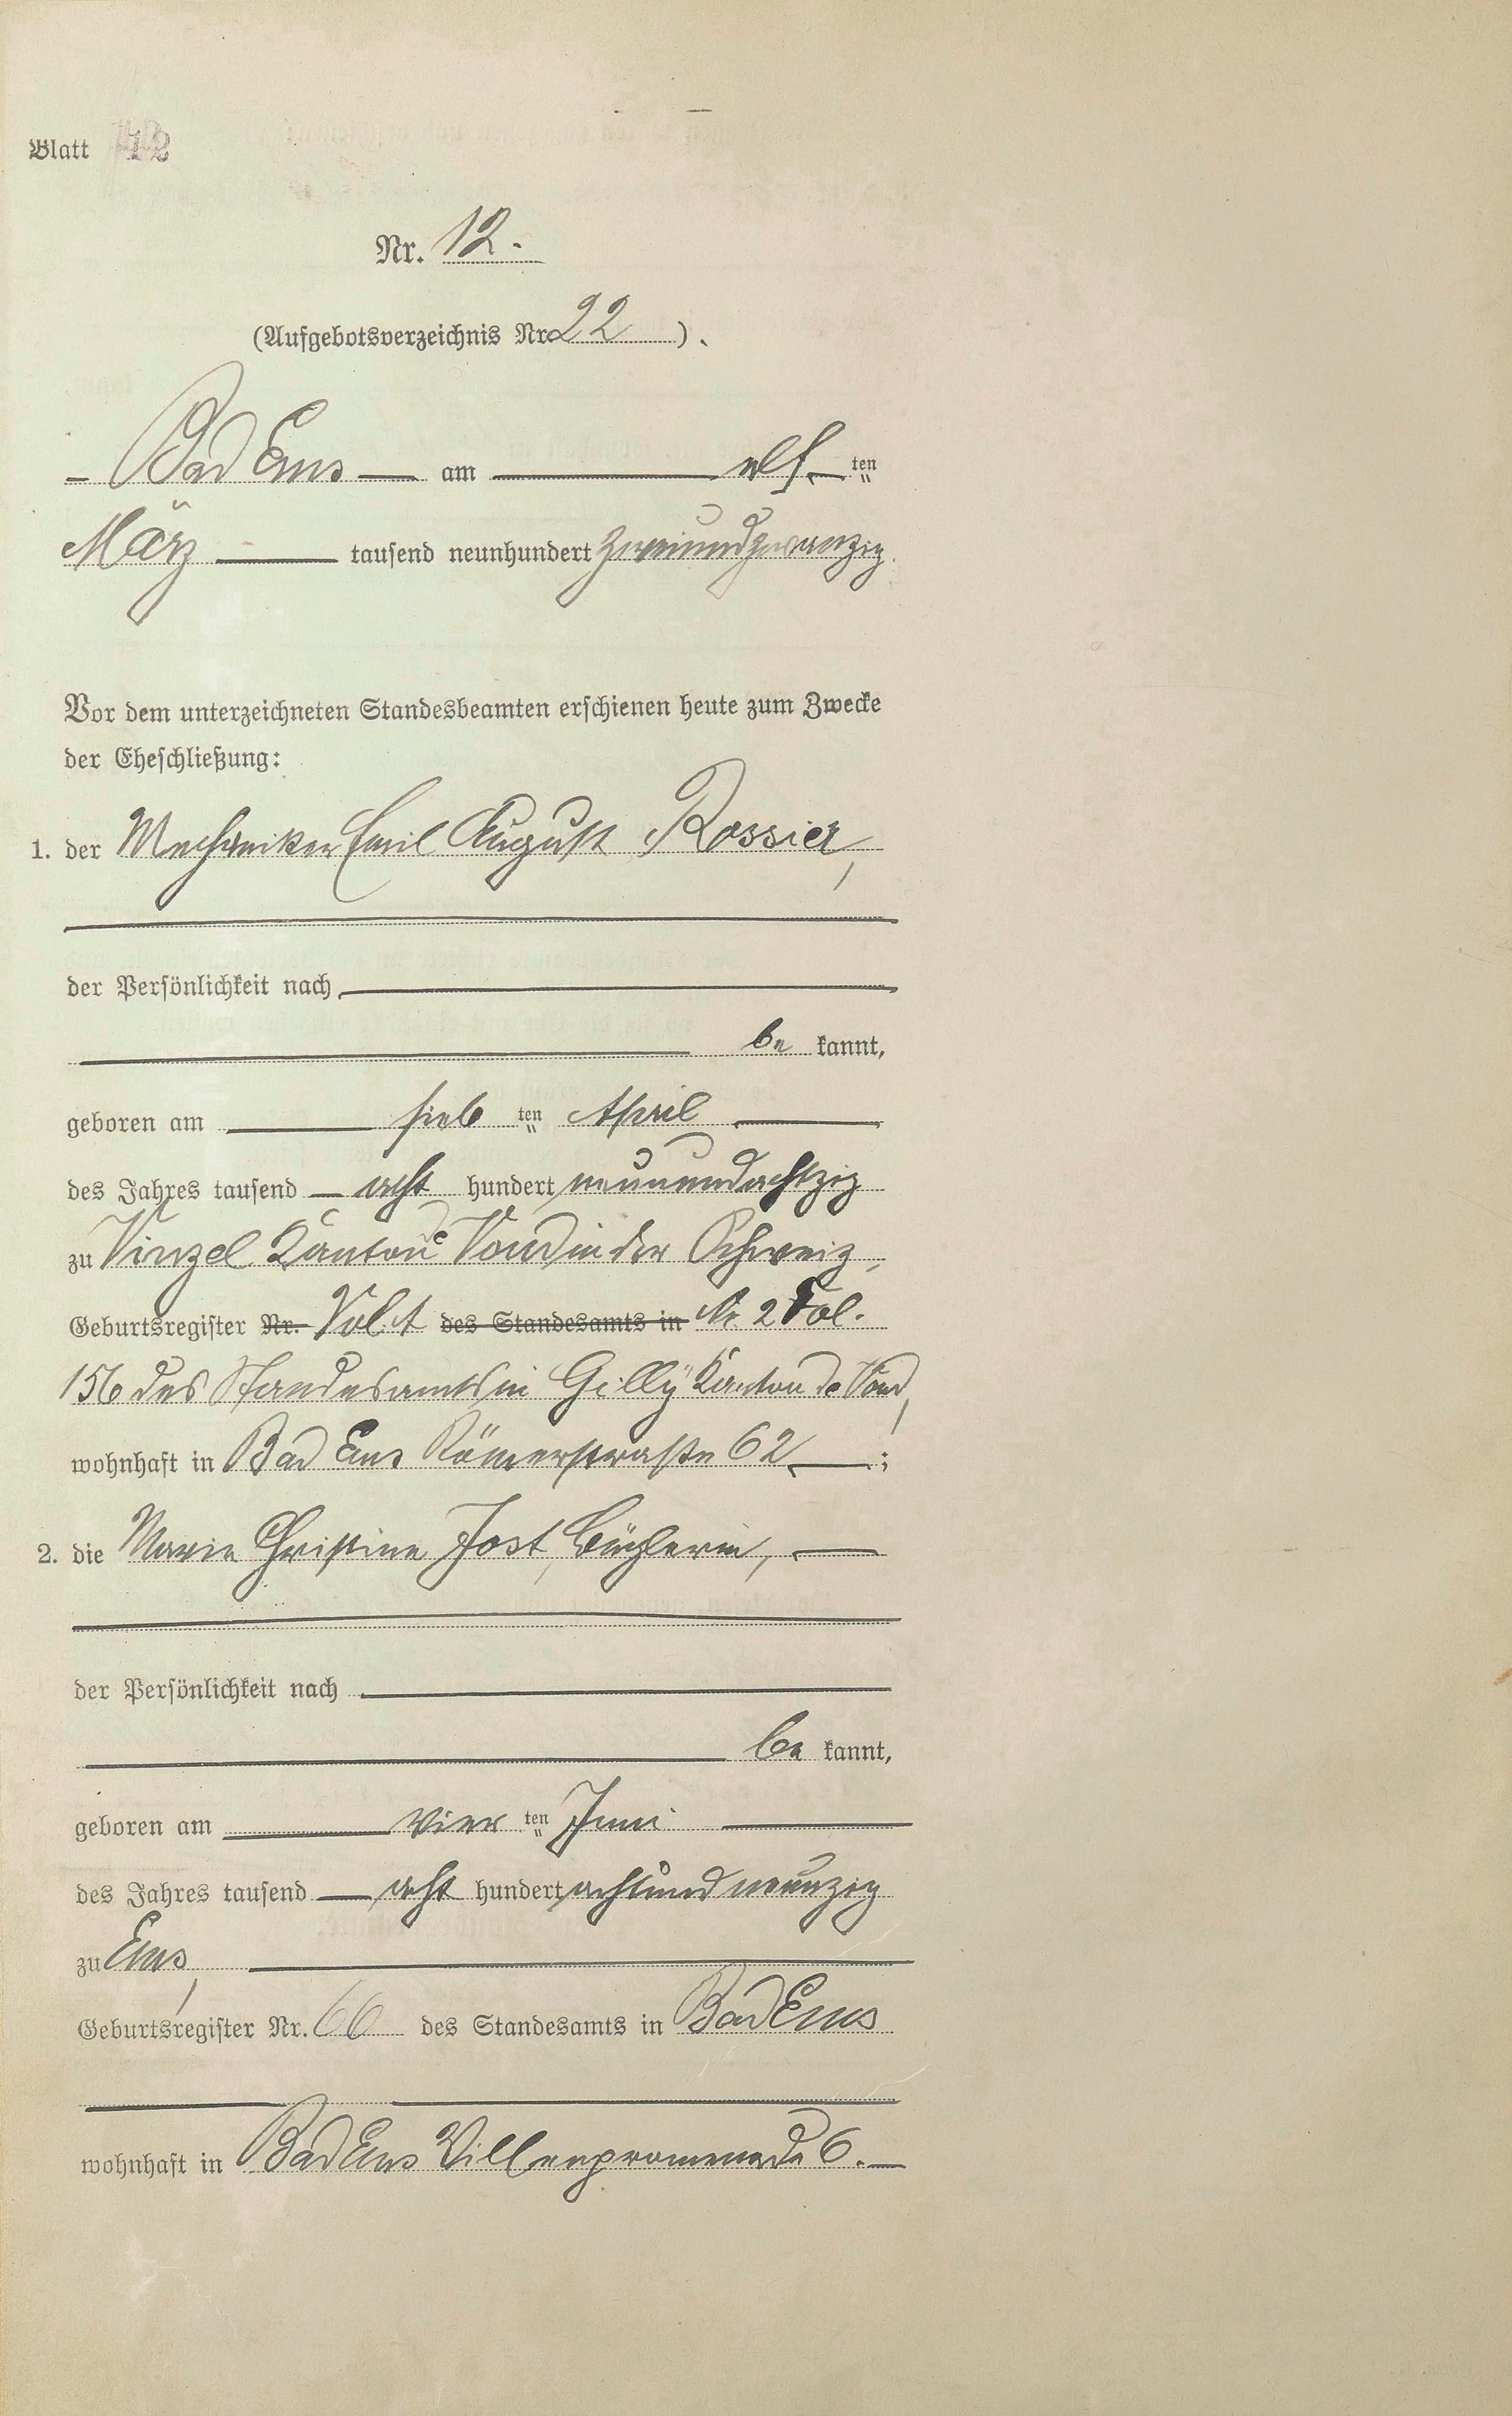 Blatt 12
Nr. 12.
(Aufgebotsverzeichnis Nr. 22).
Bad Ems am elf ten
März tausend neunhundert zweiundzwanzig.
Vor dem unterzeichneten Standesbeamten erschienen heute zum Zwecke
der Eheschließung:
1. der Mechaniker Emil August Rossier,
der Persönlichkeit nach
be kannt,
geboren am sieb ten April
des Jahres tausend acht hundert neunundachtzig
zu Vinzel Kanton Vaud in der Schweiz,
Geburtsregister Nr. Vol. A des Standesamts in Nr 2 Fol.
156 des Standesamts in Gilly Kanton de Vaud,
wohnhaft in Bad Ems Römerstraße 62;
2. die Marie Christine Jost, Büglerin,
der Persönlichkeit nach
be kannt,
geboren am vier ten Juni
des Jahres tausend acht hundert achtundneunzig
zu Ems,
Geburtsregister Nr. 66 des Standesamts in Bad Ems
wohnhaft in Bad Ems Villenpromenade 6.